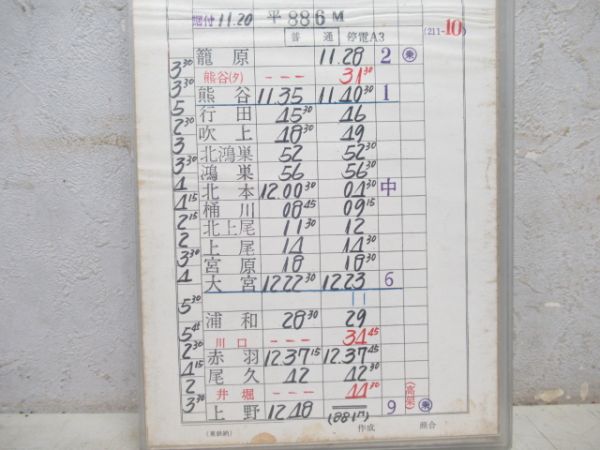 据付 11.20 平 886M
普 通 停電A3 (211-10)
籠 原 11.28 2 乗
3 30 熊谷(タ) --- 31 30
3 30 熊 谷 11.35 11.40 30 1
5 行 田 45 30 46
2 30 吹 上 48 30 49
3 北鴻巣 52 52 30
3 30 鴻 巣 56 56 30
4 北 本 12.00 30 04 30 中
4 15 桶 川 08 45 09 15
2 15 北上尾 11 30 12
2 上 尾 14 14 30
3 30 宮 原 18 18 30
4 大 宮 12.22 30 12.23 6
11
5 30 浦 和 28 30 29
5 45 川 口 --- 34 45
2 30 赤 羽 12.37 15 12.37 45
4 15 尾 久 42 42 30
2 井 堀 --- 44 30 (高架)
3 30 上 野 12.48 (881M) 9 乗
(東鉄納) 作成 照合